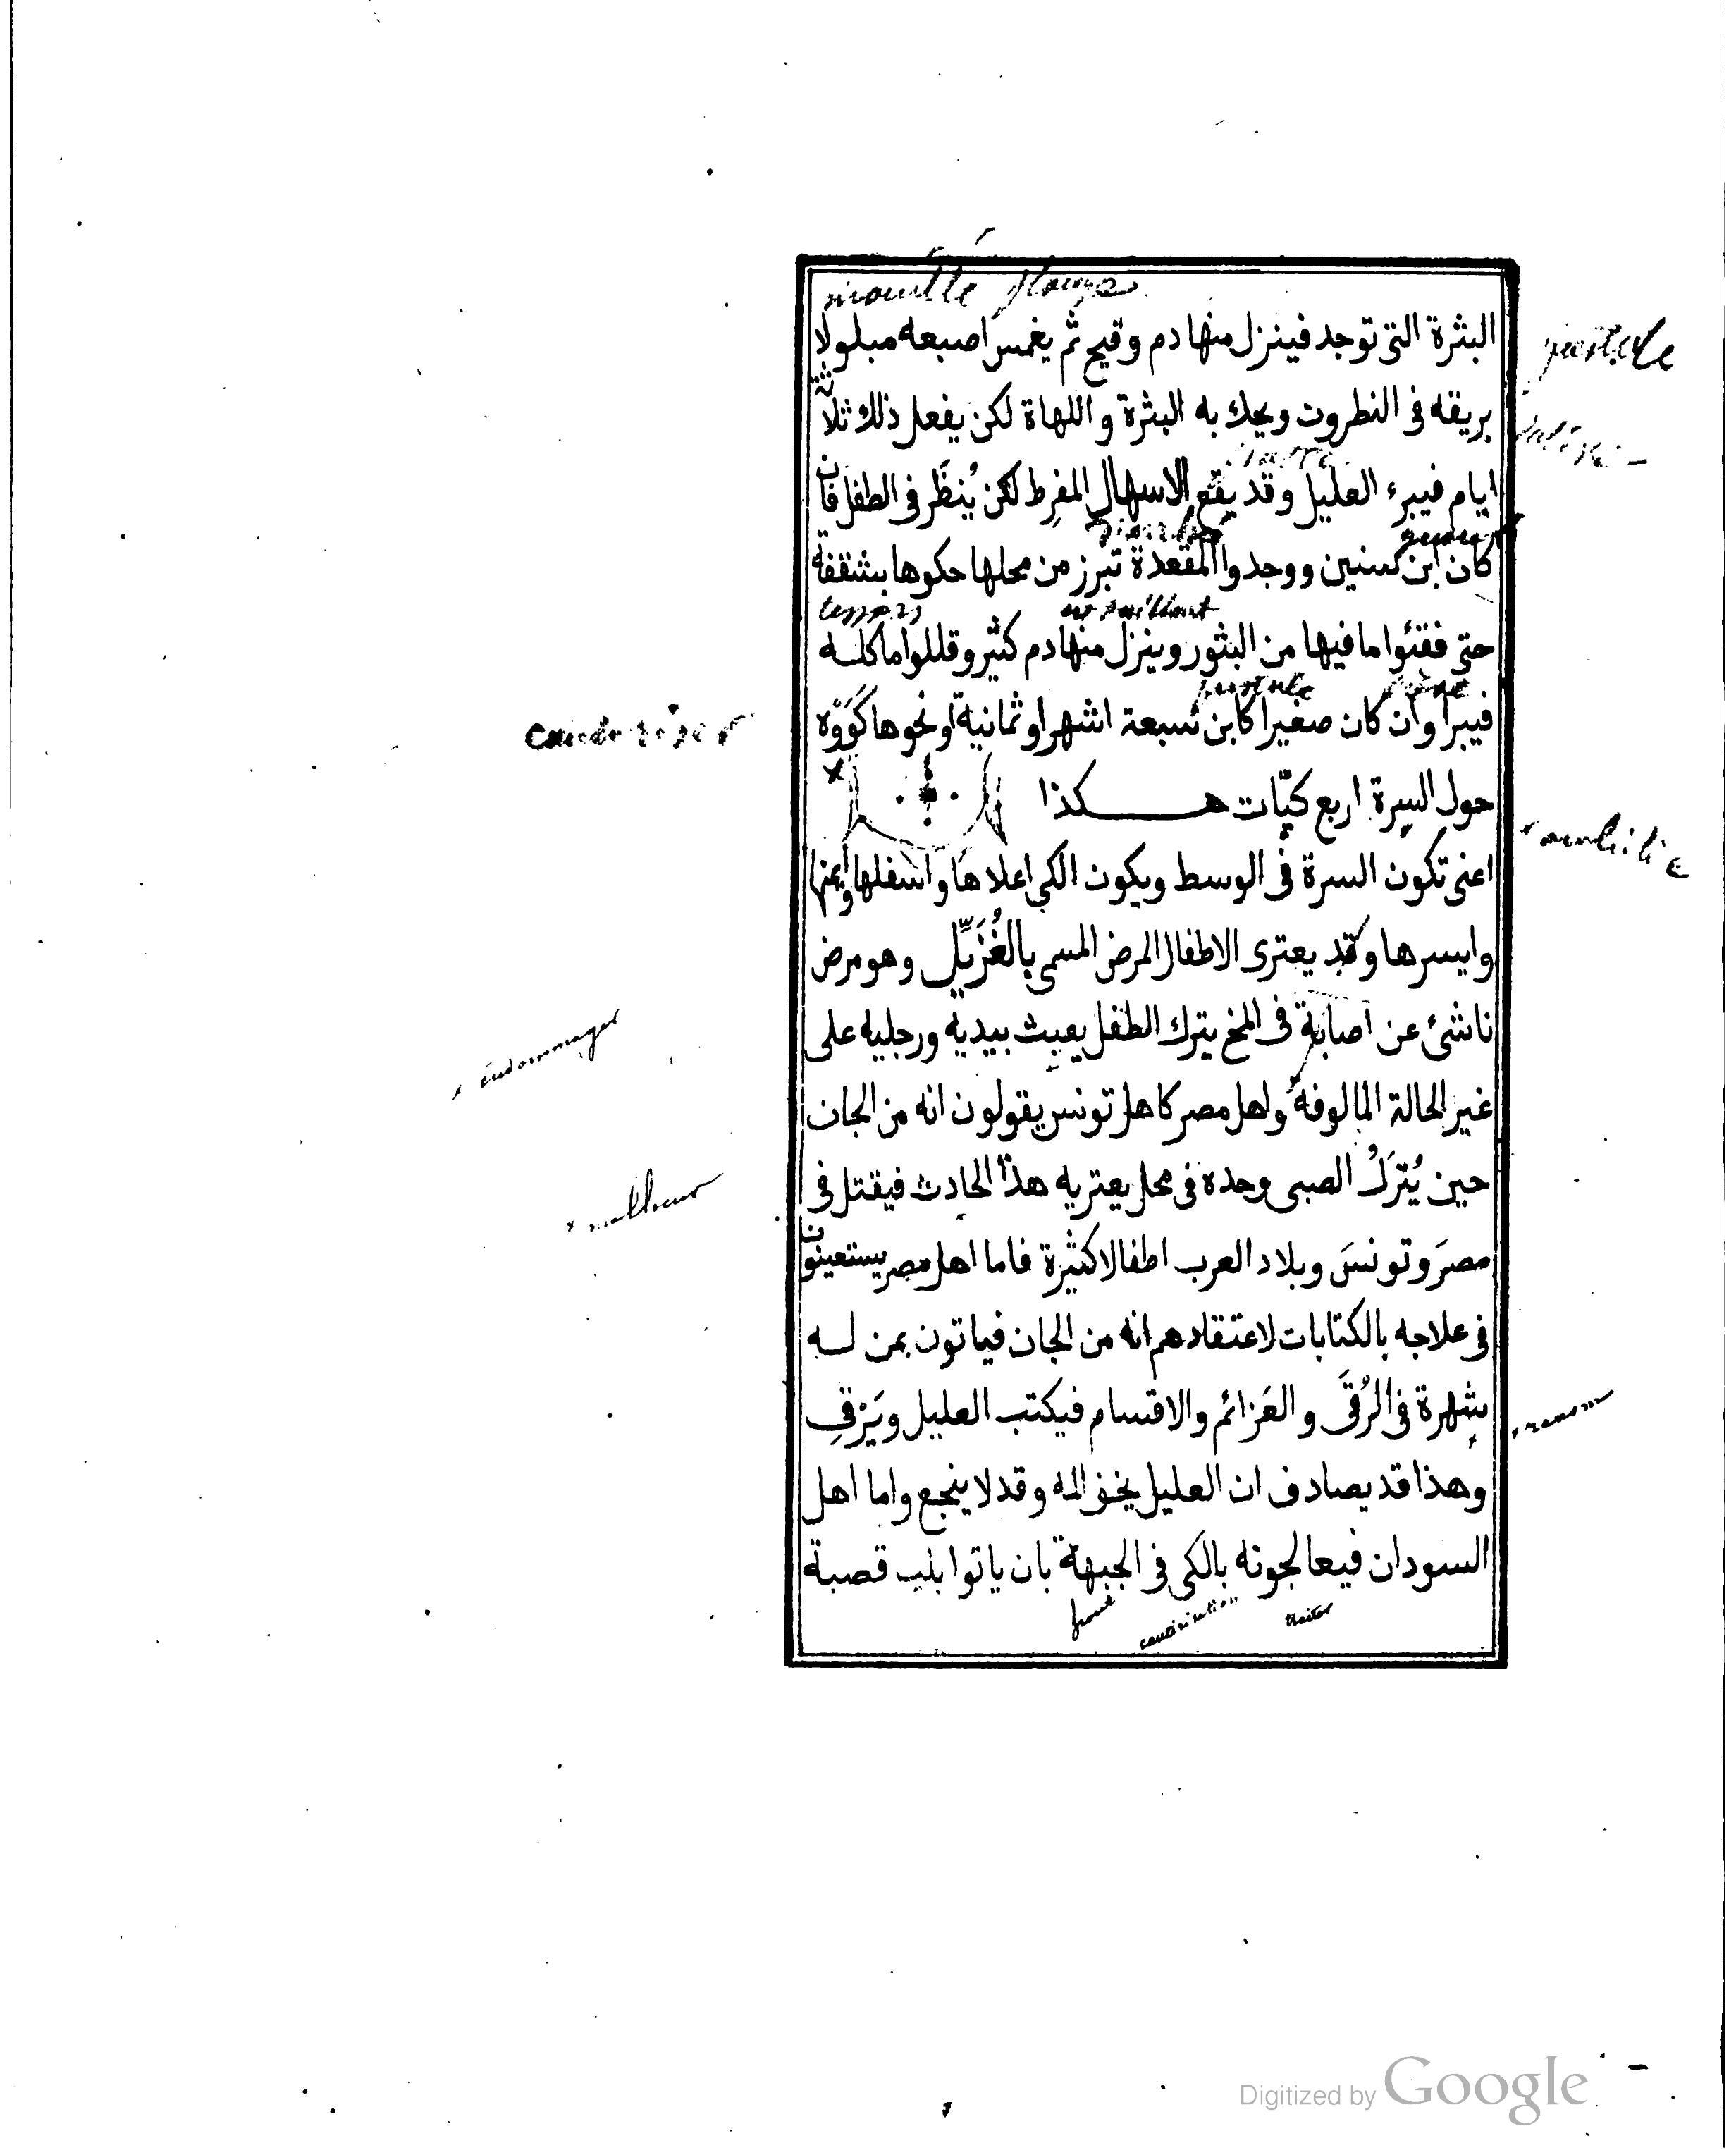 mouillé plonge
البثرة التى توجد فينزل منها دم وقيح ثم يغمس اصبعه مبلولا
pustule
بريقه فى النطروت ويحك به البثرة و اللهاة لكن يفعل ذلك ثلاثة
ايام فيبرء العليل وقد يقع الاسهال المفرط لكن يُنظَر فى الطفل فان
كان ابن سنين ووجدوا المقعدة تبرز من محلها حكوها بشقفة
tessons saillant
حتى فقئوا ما فيها من البثور وينزل منها دم كثير وقللوا ماكله
pustule
فيبرا وان كان صغيرا كابن سبعة اشهر او ثمانية او نحوها كَوَوْه
cautériser
حول السرة اربع كيّات هكذا
ombilic
اعنى تكون السرة فى الوسط ويكون الكى اعلاها واسفلها وايمنها
وايسرها وقد يعترى الاطفال المرض المسمى بالغُزَيِّل وهو مرض
ناشئ عن اصابة فى المخ يترك الطفل يعبث بيديه ورجليه على
endommager
غير الحالة المالوفة واهل مصر كاهل تونس يقولون انه من الجان
حين يُترَكُ الصبى وحده فى محل يعتريه هذا الحادث فيقتل فى
malheur
مصرَ وتونسَ وبلاد العرب اطفالا كثيرة فاما اهل مصر يستعينون
فى علاجه بالكتابات لاعتقادهم انه من الجان فياتون بمن له
شهرة فى الرُقَى و العَزائم والاقسام فيكتب العليل ويَرْقِى
renom
وهذا قد يصادف ان العليل يخف المه وقد لا ينجع واما اهل
السودان فيعالجونه بالكى فى الجبهة بان ياتوا بلب قصبة
front cautérisation traiter
Digitized by Google